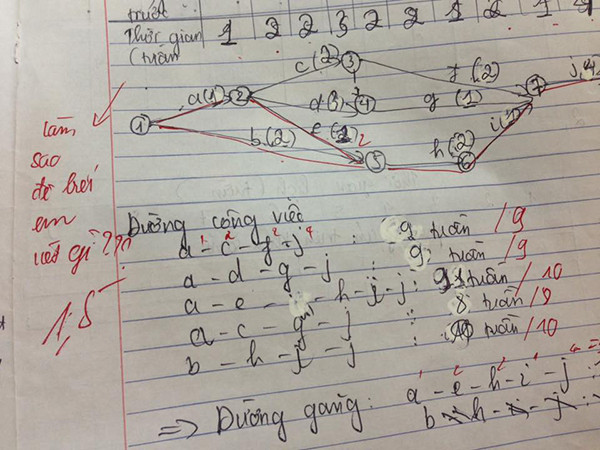 trước
Thời gian 1 2 2 3 2 2 1 2 1 4
(tuần)
c(2) 3 f(2)
a(1) 2 d(3) 4 g(1) 7 j(4)
1 b(2) e(2) 2 5 h(2) 6 i(1)
làm
sao
để biết
em
viết gì??
1,5
Đường công việc
a - c - f - j : 9 tuần / 9
1 2 2 4
a - d - g - j : 9 tuần / 9
a - e - h - i - j : tuần / 10
a - c - g - j : 8 tuần / 9
b - h - i - j : tuần / 10
=> Đường găng: a - e - h - i - j
1 2 2 1
b - h - i - j